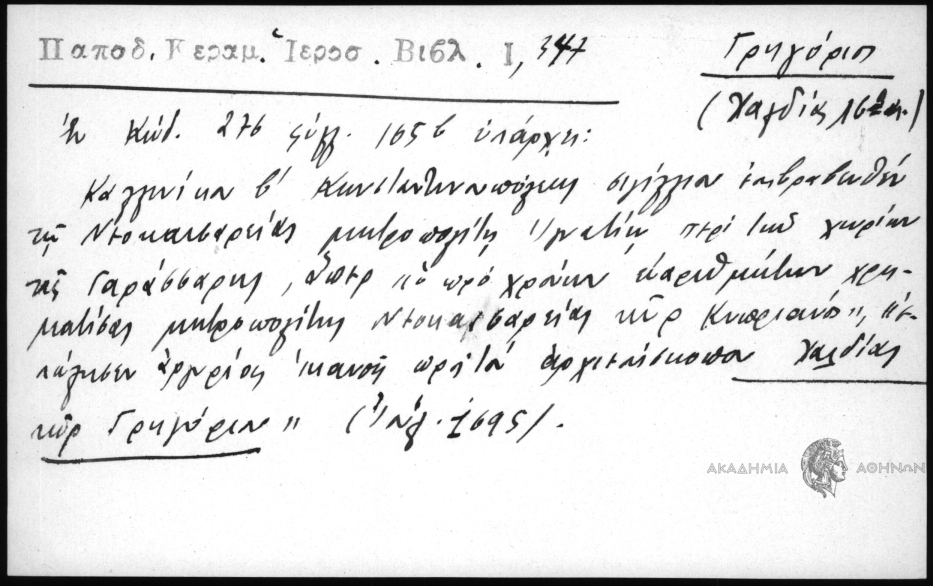 Παποδ. Κεραμ. Ἱεροσ. Βιβλ. I, 347
Γρηγόριος
(Χαλδίας
Ἐν Κώδ. 276 φύλλ. 165β ὑπάρχει:
Καλλινίκου β' Κωνσταντινουπόλεως σιγίλλιον ἐπιβραβευθὲν
τῷ Νεοκαισαρείας μητροπολίτῃ Ἰγνατίῳ περὶ τῶν χωρίων
τῆς Γαράσσαρης, ἅπερ "ὁ πρὸ χρόνων εὐαριθμήτων χρη-
ματίσας μητροπολίτης Νεοκαισαρείας κῦρ Κυπριανός",
ἀργυρίου ἱκανοῦ πρὸς τὸν ἀρχιεπίσκοπον Χαλδίας
κῦρ Γρηγόριον" (Ἰούλ. 1695).
ΑΚΑΔΗΜΙΑ ΑΘΗΝΩΝ